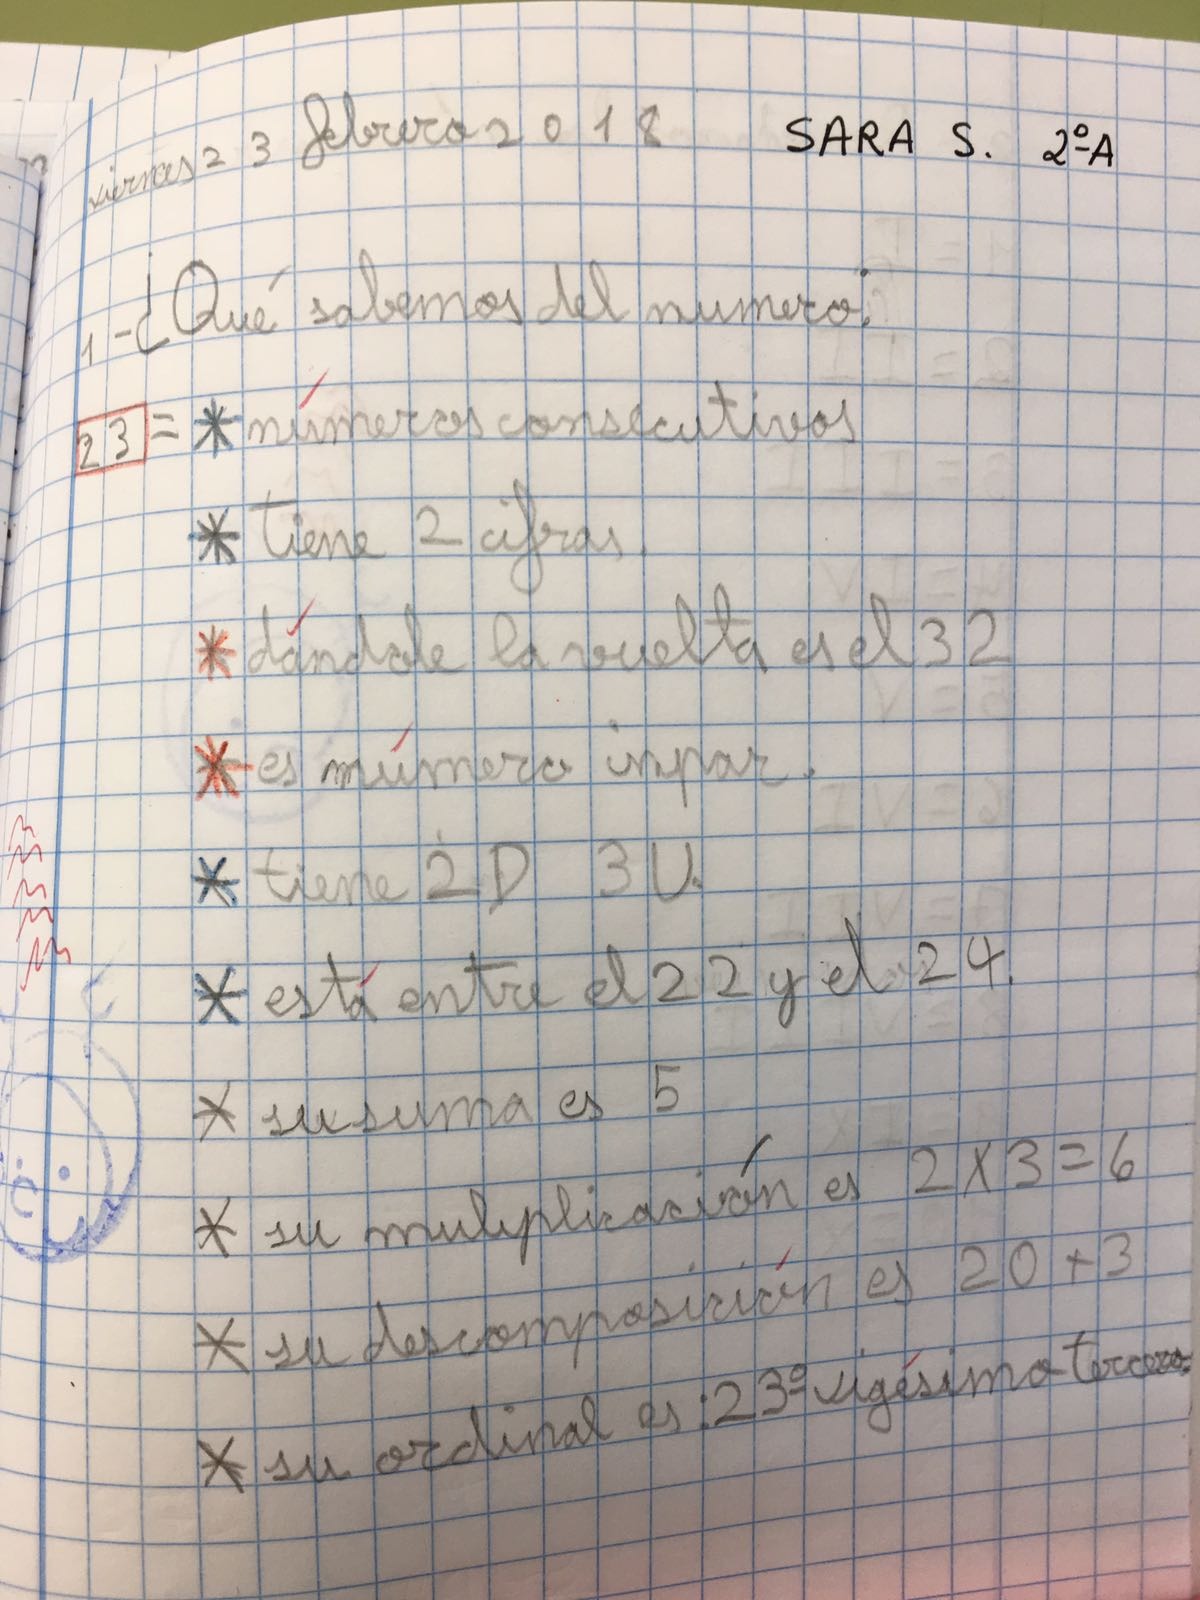 viernes 23 febrero 2018 SARA S. 2ºA
1-¿Qué sabemos del numero:
23 = * números consecutivos
* tiene 2 cifras.
* dándole la vuelta es el 32
* es número inpar.
* tiene 2D 3U.
* está entre el 22 y el 24.
* su suma es 5
* su muliplicación es 2x3=6
* su descomposición es 20+3
* su ordinal es: 23º vigésimo tercero.